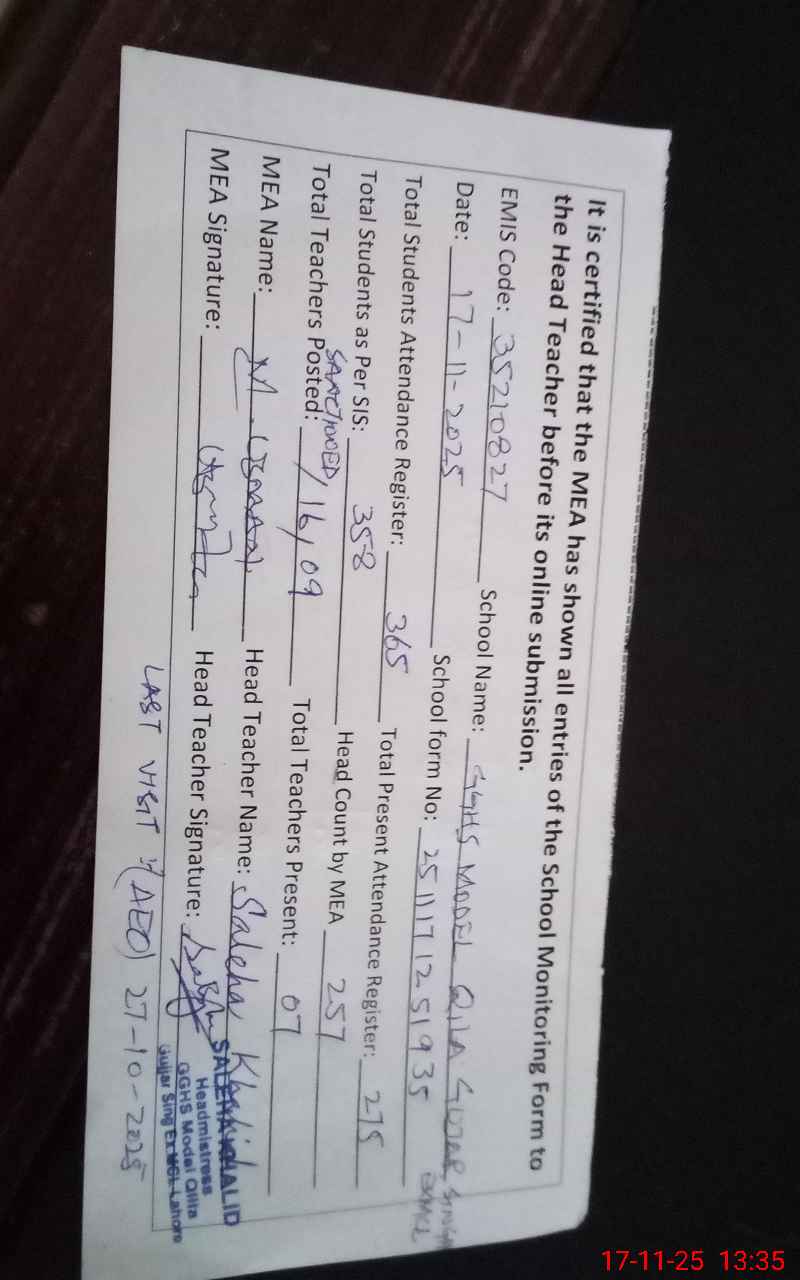 It is certified that the MEA has shown all entries of the School Monitoring Form to
the Head Teacher before its online submission.
EMIS Code: 35210827 School Name: GGHS MODEL QILA GUJAR SINGH EXMCL
Date: 17-11-2025 School form No: 2511171251935
Total Students Attendance Register: 365 Total Present Attendance Register: 275
Total Students as Per SIS: 358 Head Count by MEA 257
SANCTIONED
Total Teachers Posted: / 16 / 09 Total Teachers Present: 07
MEA Name: M. USMAN Head Teacher Name: Saleha Khalid
MEA Signature: Head Teacher Signature:
SALEHA KHALID
Headmistress
GGHS Model Qilla
Gujjar Sing Ex MCL Lahore
LAST VISIT (AEO) 27-10-2025
17-11-25 13:35